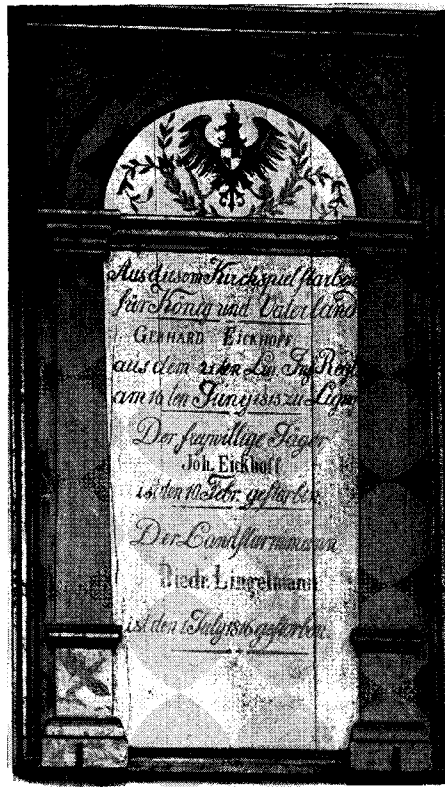 Aus diesem Kirchspiel starben
für König und Vaterland
GERHARD EICKHOFF
aus dem 21ten Lin. Inf. Regt
am 16ten Juny 1815 zu Ligny
Der freywillige Jäger
Joh. Eickhoff
ist den 10 Febr. gestorben.
Der Landsturmmann
Diedr. Lingelmann
ist den 1 July 1816 gestorben.